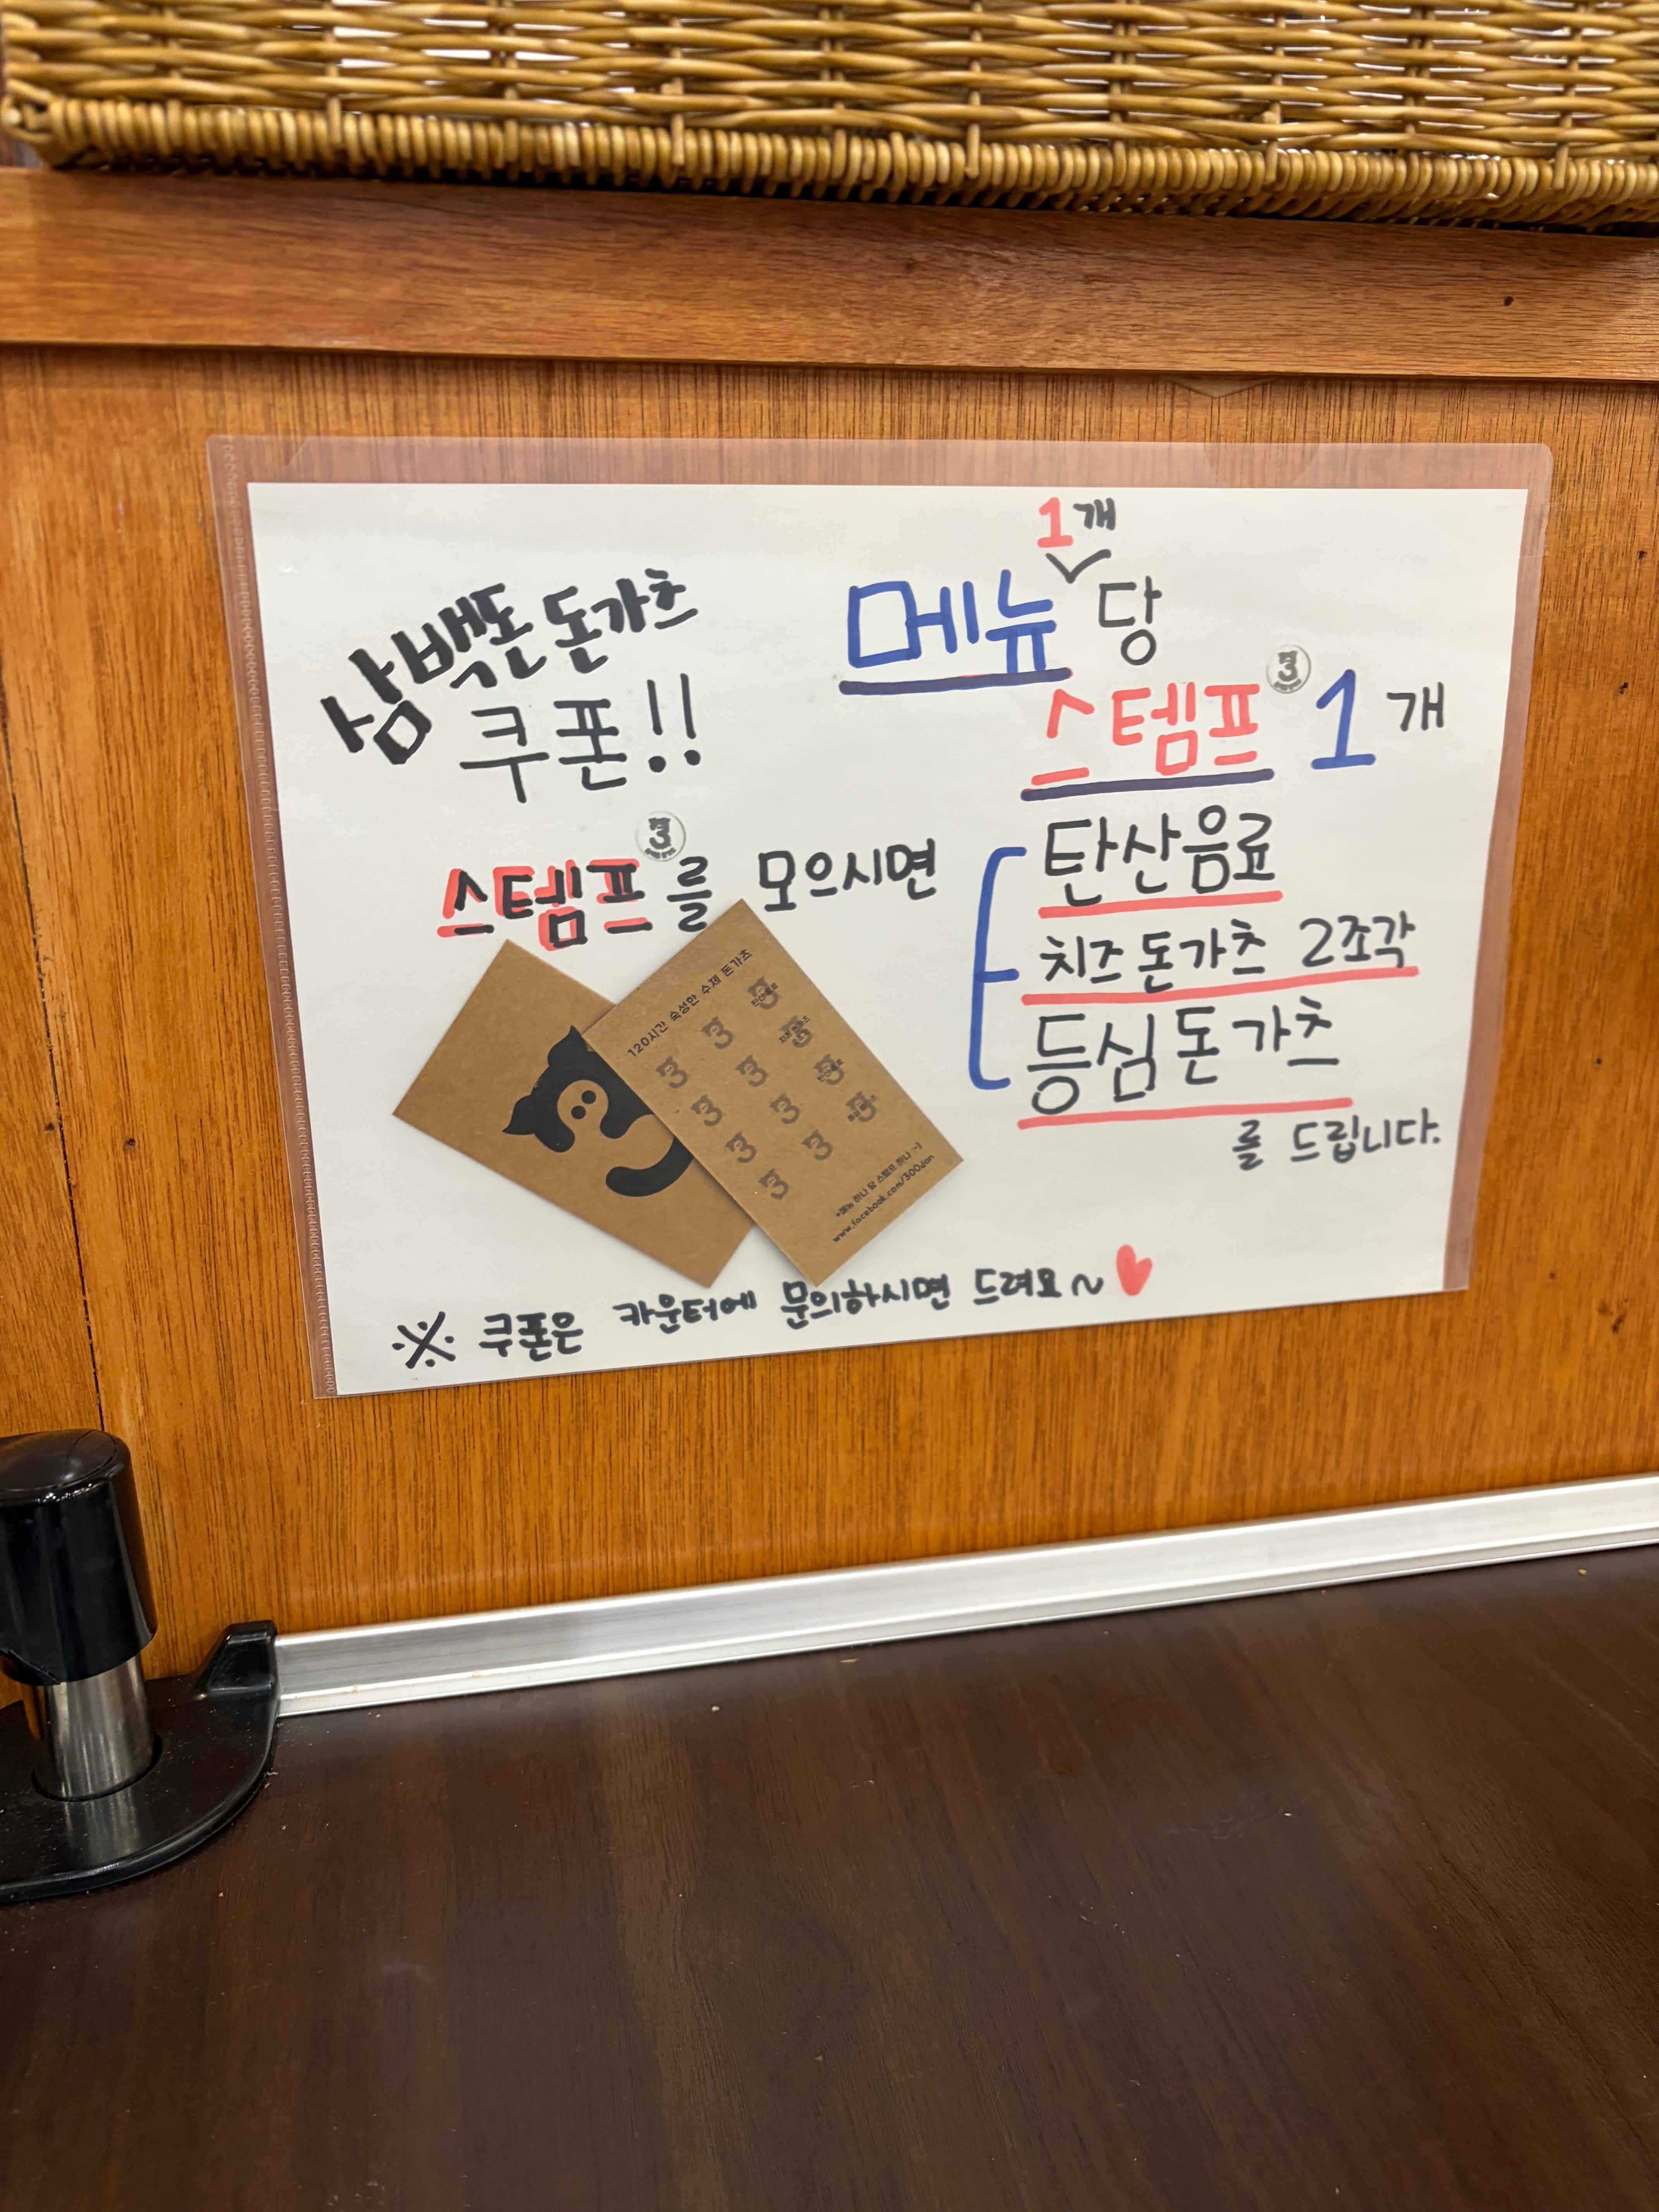 삼백돈 돈가츠
쿠폰!!
메뉴 1개 당
스템프 1개
스템프를 모으시면
탄산음료
치즈돈가츠 2조각
등심돈가츠
를 드립니다.
120시간 숙성한 수제 돈가츠
*메뉴 하나 당 스탬프 하나 :-)
www.facebook.com/300don
※ 쿠폰은 카운터에 문의하시면 드려요~